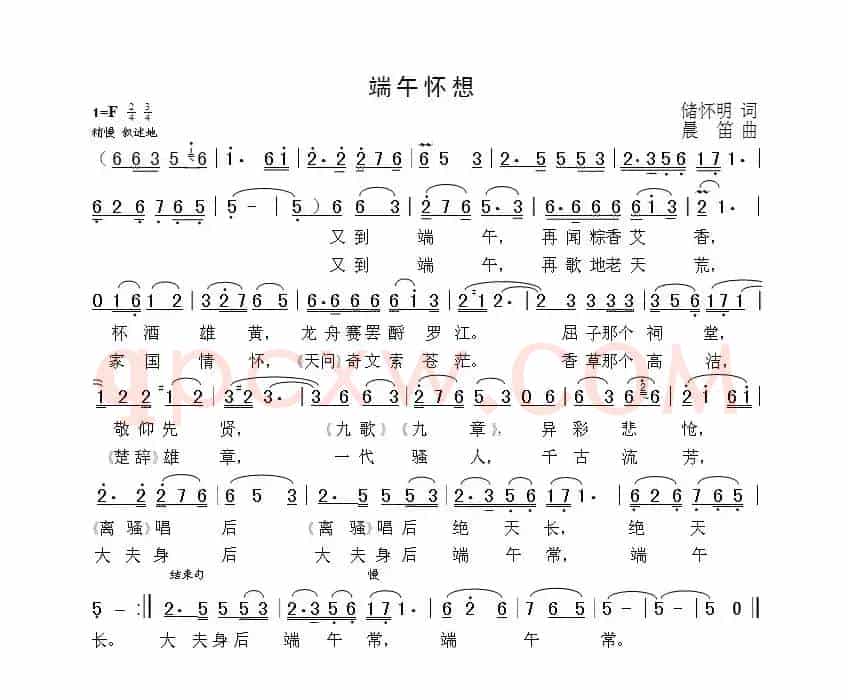 端午怀想
1=F 2/4 3/4
储怀明 词
稍慢 叙述地
晨 笛 曲
(6 6 3 5 i 6 | i· 6 i | 2· 2 2 7 6 | 6 5 3 | 2· 5 5 5 3 | 2· 3 5 6 1 7 1· |
6 2 6 7 6 5 | 5 - | 5) 6 6 3 | 2 7 6 5· 3 | 6· 6 6 6 6 i 3 | 2 i· |
又到 端 午, 再闻粽香艾 香,
又到 端 午, 再歌地老天 荒,
0 1 6 1 2 | 3 2 7 6 5 | 6· 6 6 6 2 3 | 2 1 2· | 2 3 3 3 3 | 3 5 6 1 7 1 |
杯酒雄黄, 龙舟赛罢爵罗江。 屈子那个祠堂,
家国情怀, 《天问》奇文索苍茫。 香草那个高洁,
敬仰先贤, 《九歌》《九章》, 异彩悲怆,
《楚辞》雄章, 一代骚人, 千古流芳,
2· 2 2 7 6 | 6 5 3 | 2· 5 5 5 3 | 2· 3 5 6 1 7 1· | 6 2 6 7 6 5 |
《离骚》唱后 《离骚》唱后绝天长, 绝天
大夫身后 大夫身后端午常, 端午
结束句 慢
5 - :‖ 2· 5 5 5 3 | 2· 3 5 6 1 7 1· | 6 2 6 | 7 6 5 | 5 - | 5 - | 5 0 ‖
长。 大夫身后端午常, 端午常。
qpcxw.COM